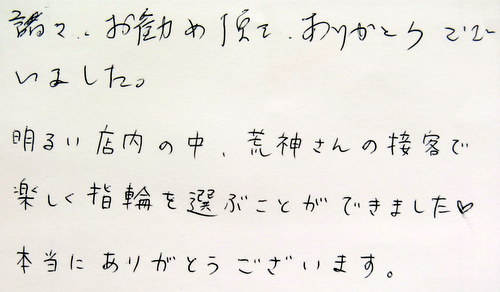 諸々、お勧め頂き、ありがとうござ
いました。
明るい店内の中、荒神さんの接客で
楽しく指輪を選ぶことができました♡
本当にありがとうございます。